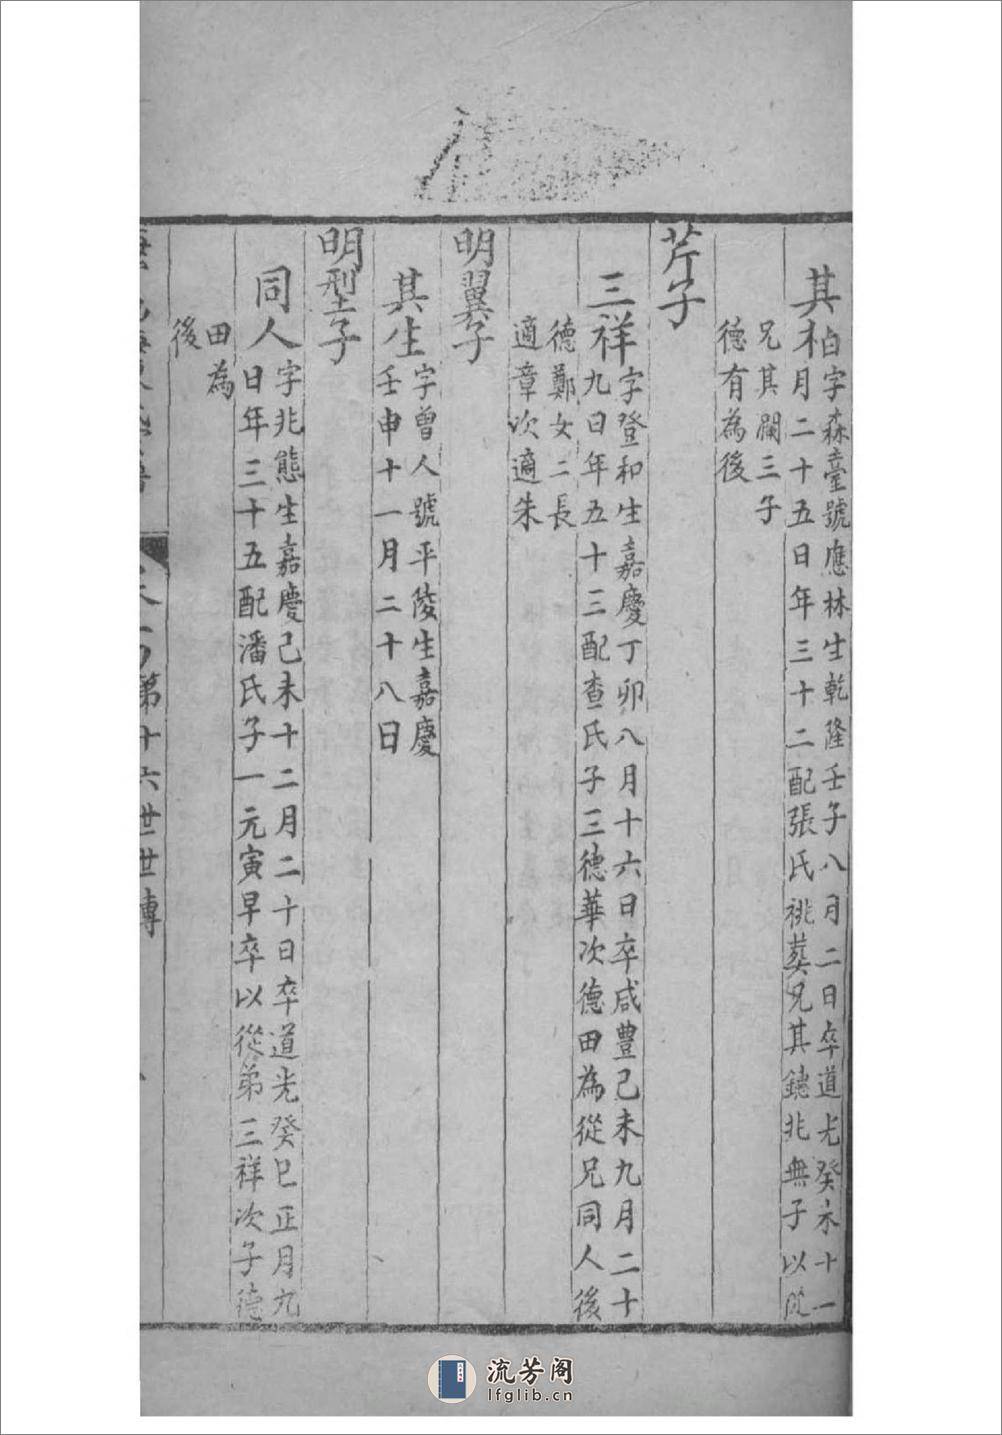 其柏字森臺號應林生乾隆壬子八月二日卒道光癸未十一
月二十五日年三十二配張氏祧葬兄其鏸兆無子以從
兄其瀾三子
德有為後
芹子
三祥字登和生嘉慶丁卯八月十六日卒咸豐己未九月二十
九日年五十三配查氏子三德華次德田為從兄同人後
德鄭女二長
適章次適朱
明翼子
其生字曾人號平陵生嘉慶
壬申十一月二十八日
明型子
同人字兆態生嘉慶己未十二月二十日卒道光癸巳正月九
日年三十五配潘氏子一元寅早卒以從弟三祥次子德
田為
後
第十六世世傳
流芳阁
lfglib.cn